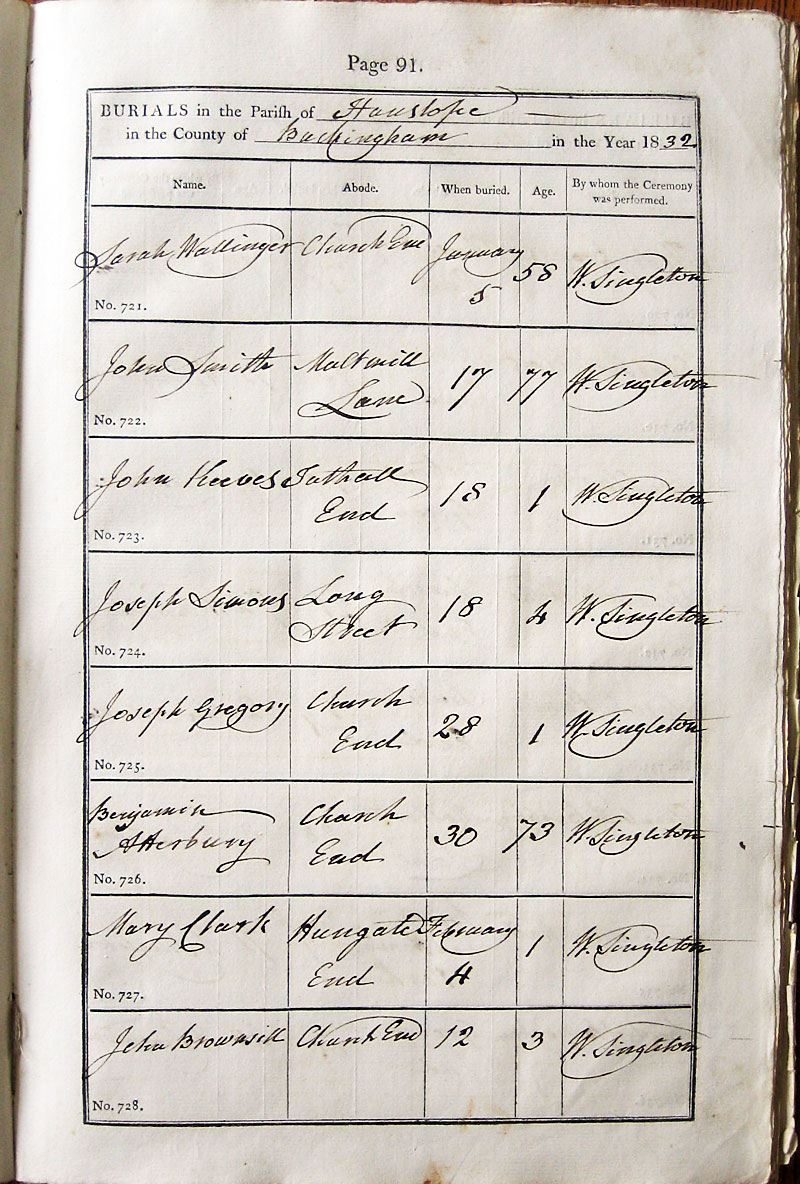 Page 91.
BURIALS in the Parish of Hanslope
in the County of Buckingham in the Year 1832
Name. Abode. When buried. Age. By whom the Ceremony was performed.
Sarah Wallinger Church End January 5 58 W. Singleton
No. 721.
John Smith Maltmill Lane 17 77 W. Singleton
No. 722.
John Keeves Tathall End 18 1 W. Singleton
No. 723.
Joseph Simons Long Street 18 4 W. Singleton
No. 724.
Joseph Gregory Church End 28 1 W. Singleton
No. 725.
Benjamin Atterbury Church End 30 73 W. Singleton
No. 726.
Mary Clark Hungate End February 4 1 W. Singleton
No. 727.
John Brownsill Church End 12 3 W. Singleton
No. 728.